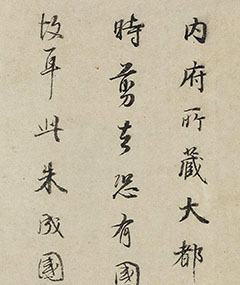 内府所藏大都
時剪去恐有國
故耳此朱成國